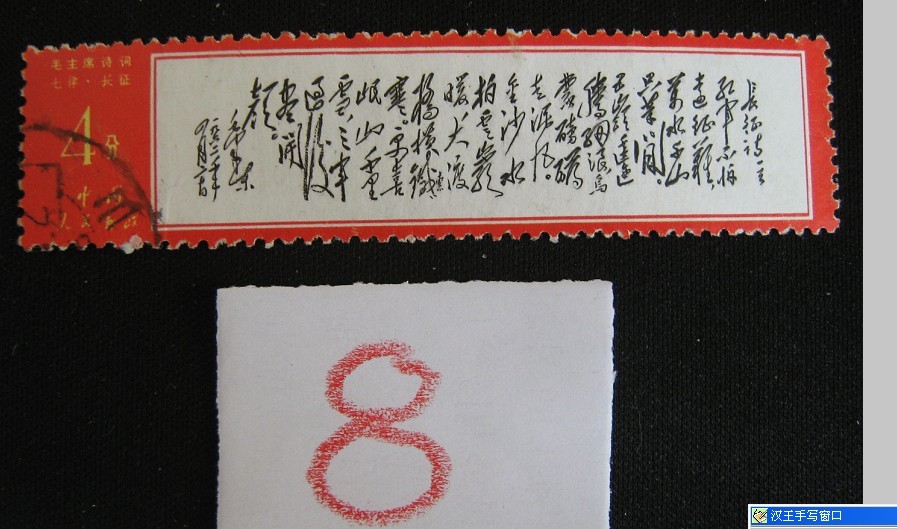 毛主席诗词
七律·长征
4分
中国
人民邮政
长征诗一首
红军不怕
远征难。
万水千山
只等闲。
五岭逶迤
腾细浪乌
蒙磅礴
走泥丸。
金沙水
拍云崖
暖大渡
桥横铁索
寒更喜
岷山千里
雪三军
过后
尽开
颜
毛泽东
8
汉王手写窗口